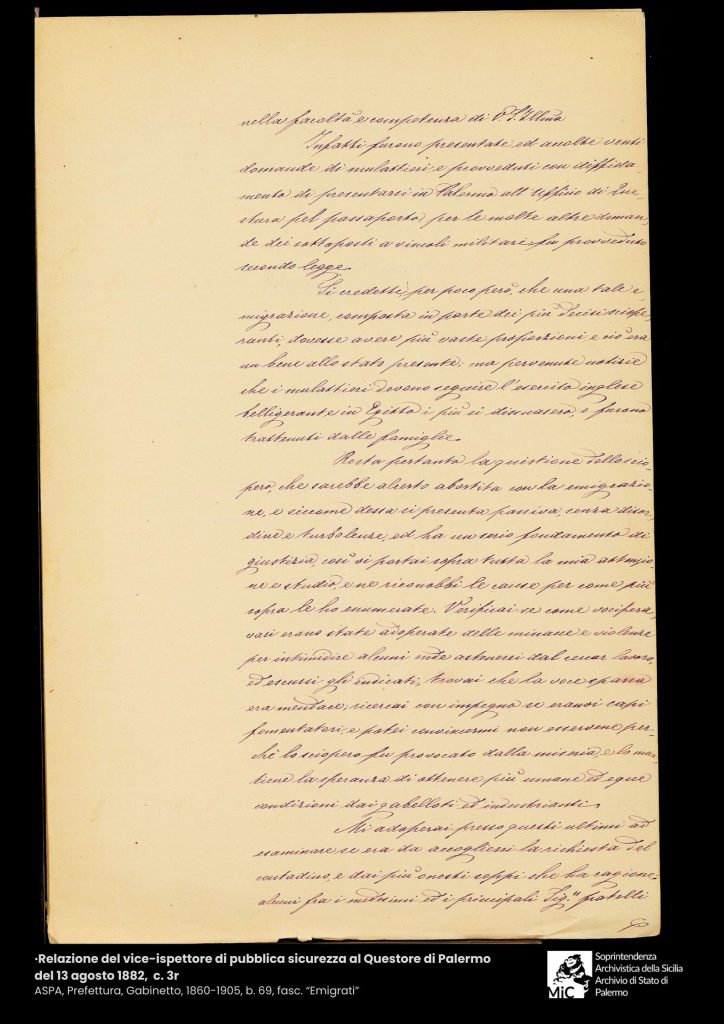 nella facoltà e competenza di V. S. Ill.ma
Infatti furono presentate ed accolte venti
domande di mulattieri, e provveduti con diffida-
mento di presentarsi in Palermo all'Uffizio di Que-
stura pel passaporto, per le molte altre diman-
de dei sottoposti a vincoli militari fu provveduto
secondo legge.
Si credette, per poco però, che una tale e-
migrazione, composta in parte dei più decisi sciope-
ranti, dovesse avere più vaste proporzioni e ciò era
un bene allo stato presente; ma pervenute notizie
che i mulattieri devono seguire l'esercito inglese
belligerante in Egitto i più si dissuasero, o furono
trattenuti dalle famiglie.
Resta pertanto la quistione dello scio-
pero, che sarebbe alcerto abortita con la emigrazio-
ne, e siccome dessa si presenta passiva, senza disor-
dine e turbolenze, ed ha un serio fondamento di
giustizia, così vi portai sopra tutta la mia attenzio-
ne e studio, e ne riconobbi le cause per come più
sopra le ho enumerate. Verificai se come vocifera-
vasi erano state adoperate delle minacce e violenze
per intimidire alcuni onde astenersi dal lavoro,
ed escussi gli indicati, trovai che la voce sparsa
era mendace; ricercai con impegno se eranvi capi
fomentatori, e potei convincermi non esservene per-
chè lo sciopero fu provocato dalla miseria, e lo man-
tiene la speranza di ottenere più umane ed eque
condizioni dai gabelloti ed industrianti.
Mi adoperai presso questi ultimi ad
esaminare se era da accogliersi la richiesta del
contadino, e dai più onesti seppi che ha ragione;
alcuni fra i medesimi ed i principali Sig.ri fratelli
·Relazione del vice-ispettore di pubblica sicurezza al Questore di Palermo
del 13 agosto 1882, c. 3r
ASPA, Prefettura, Gabinetto, 1860-1905, b. 69, fasc. "Emigrati"
MiC
Soprintendenza
Archivistica della Sicilia
Archivio di Stato di
Palermo